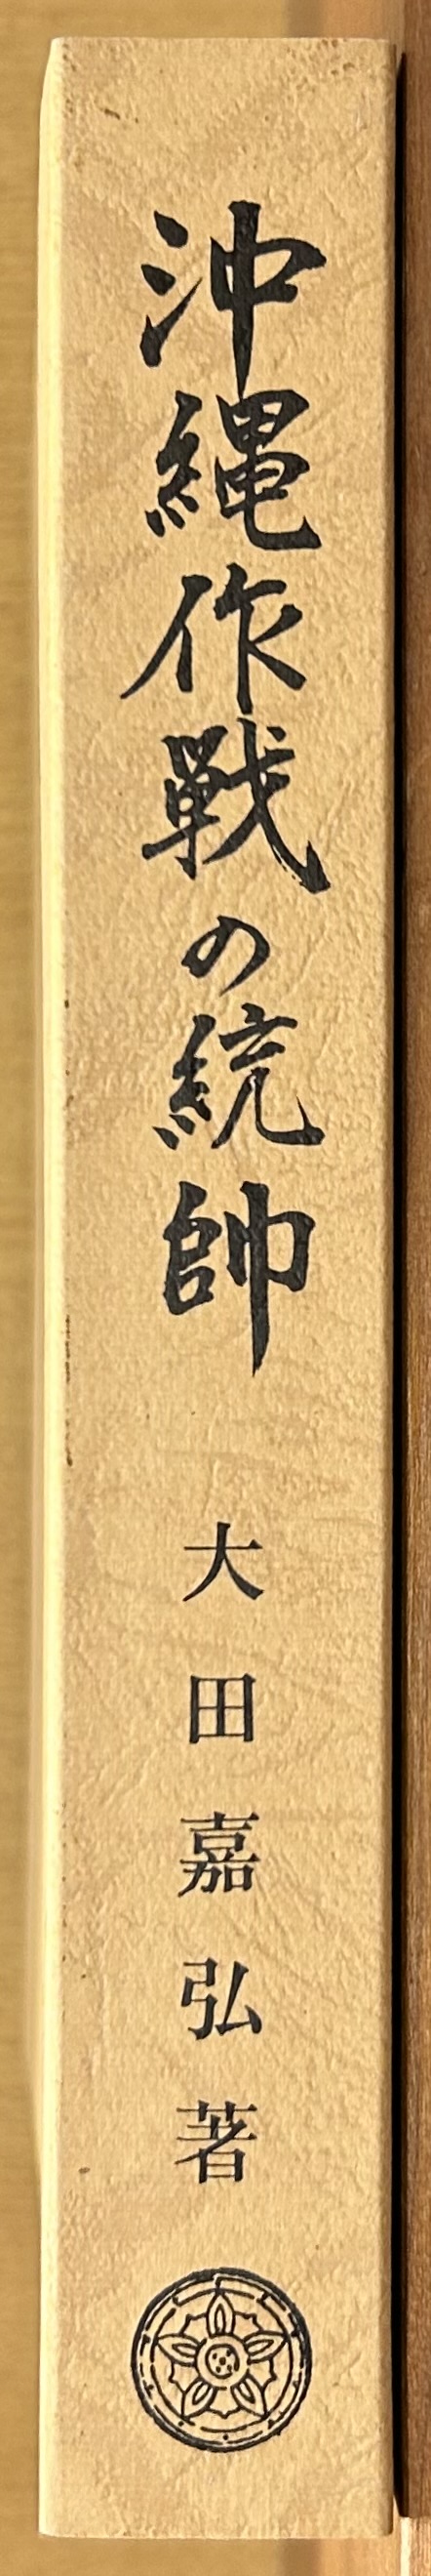 沖縄作戦の統帥
大田嘉弘著